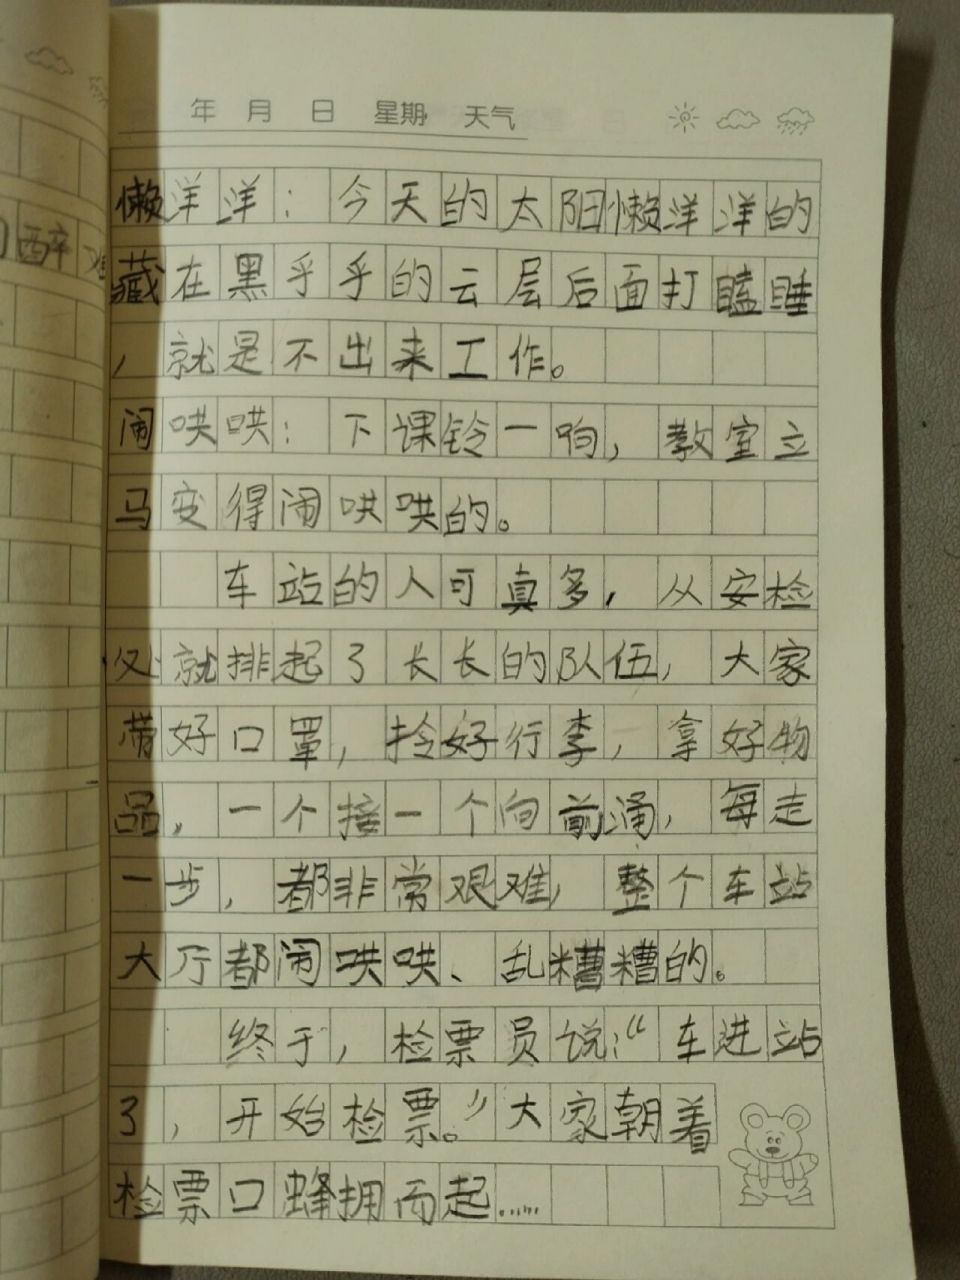 年 月 日 星期 天气
懒洋洋：今天的太阳懒洋洋的
藏在黑乎乎的云层后面打瞌睡
，就是不出来工作。
闹哄哄：下课铃一响，教室立
马变得闹哄哄的。
车站的人可真多，从安检
处就排起了长长的队伍，大家
带好口罩，拎好行李，拿好物
品，一个接一个向前涌，每走
一步，都非常艰难，整个车站
大厅都闹哄哄、乱糟糟的。
终于，检票员说：“车进站
了，开始检票。”大家朝着
检票口蜂拥而起……
醉